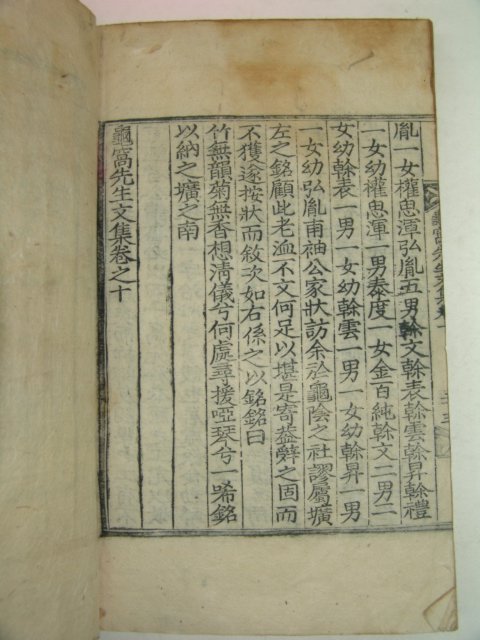 胤一女權忠渾弘胤五男榦文榦表榦雲榦昇榦禮
一女幼權忠渾一男泰度一女金百純榦文二男二
女幼榦表一男一女幼榦雲一男一女幼榦昇一男
一女幼弘胤甫袖公家狀訪余於龜陰之社謬屬壙
左之銘顧此老洫不文何足以堪是寄益辭之固而
不獲遂按狀而敘次如右係之以銘銘曰
竹無韻菊無香想淸儀兮何處尋援啞琴兮一唏銘
以納之壙之南
龜窩先生文集卷之十